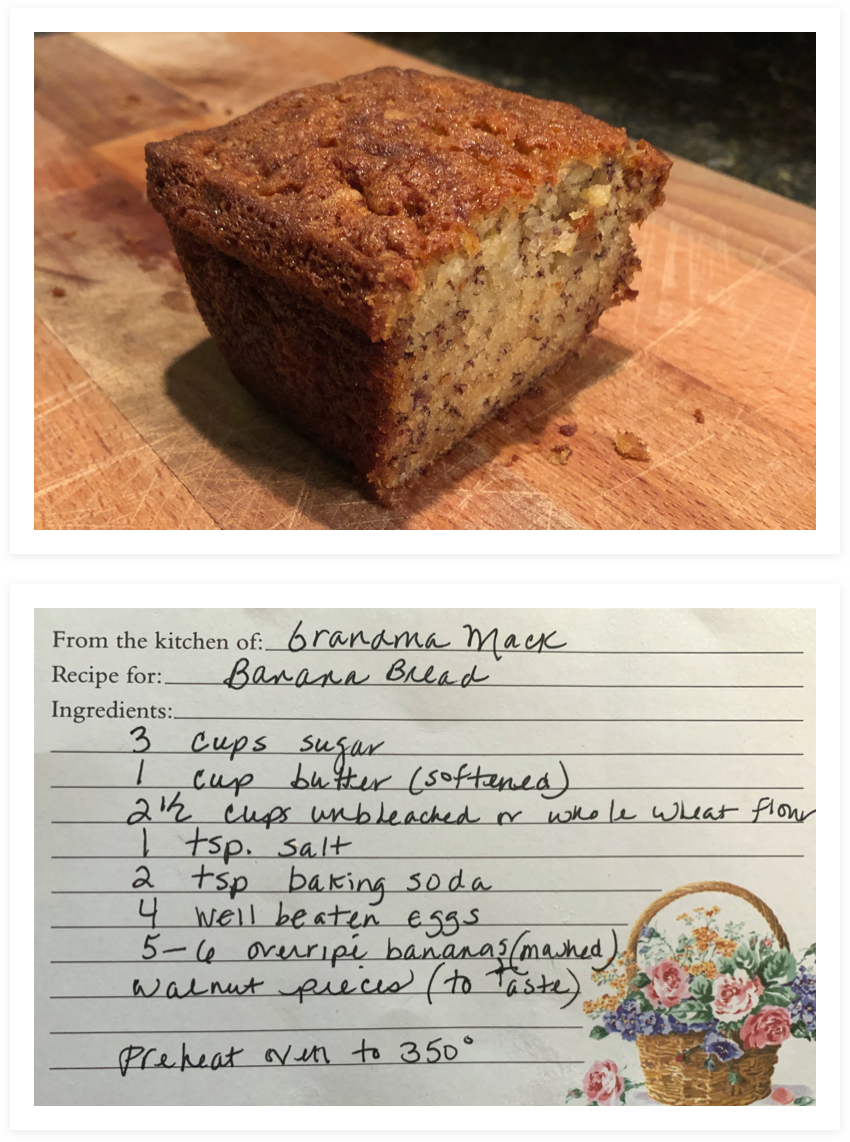 From the kitchen of: Grandma Mack
Recipe for: Banana Bread
Ingredients:
3 cups sugar
1 cup butter (softened)
2 1/2 cups unbleached or whole wheat flour
1 tsp. salt
2 tsp baking soda
4 well beaten eggs
5-6 overripe bananas (mashed)
walnut pieces (to taste)
Preheat oven to 350°